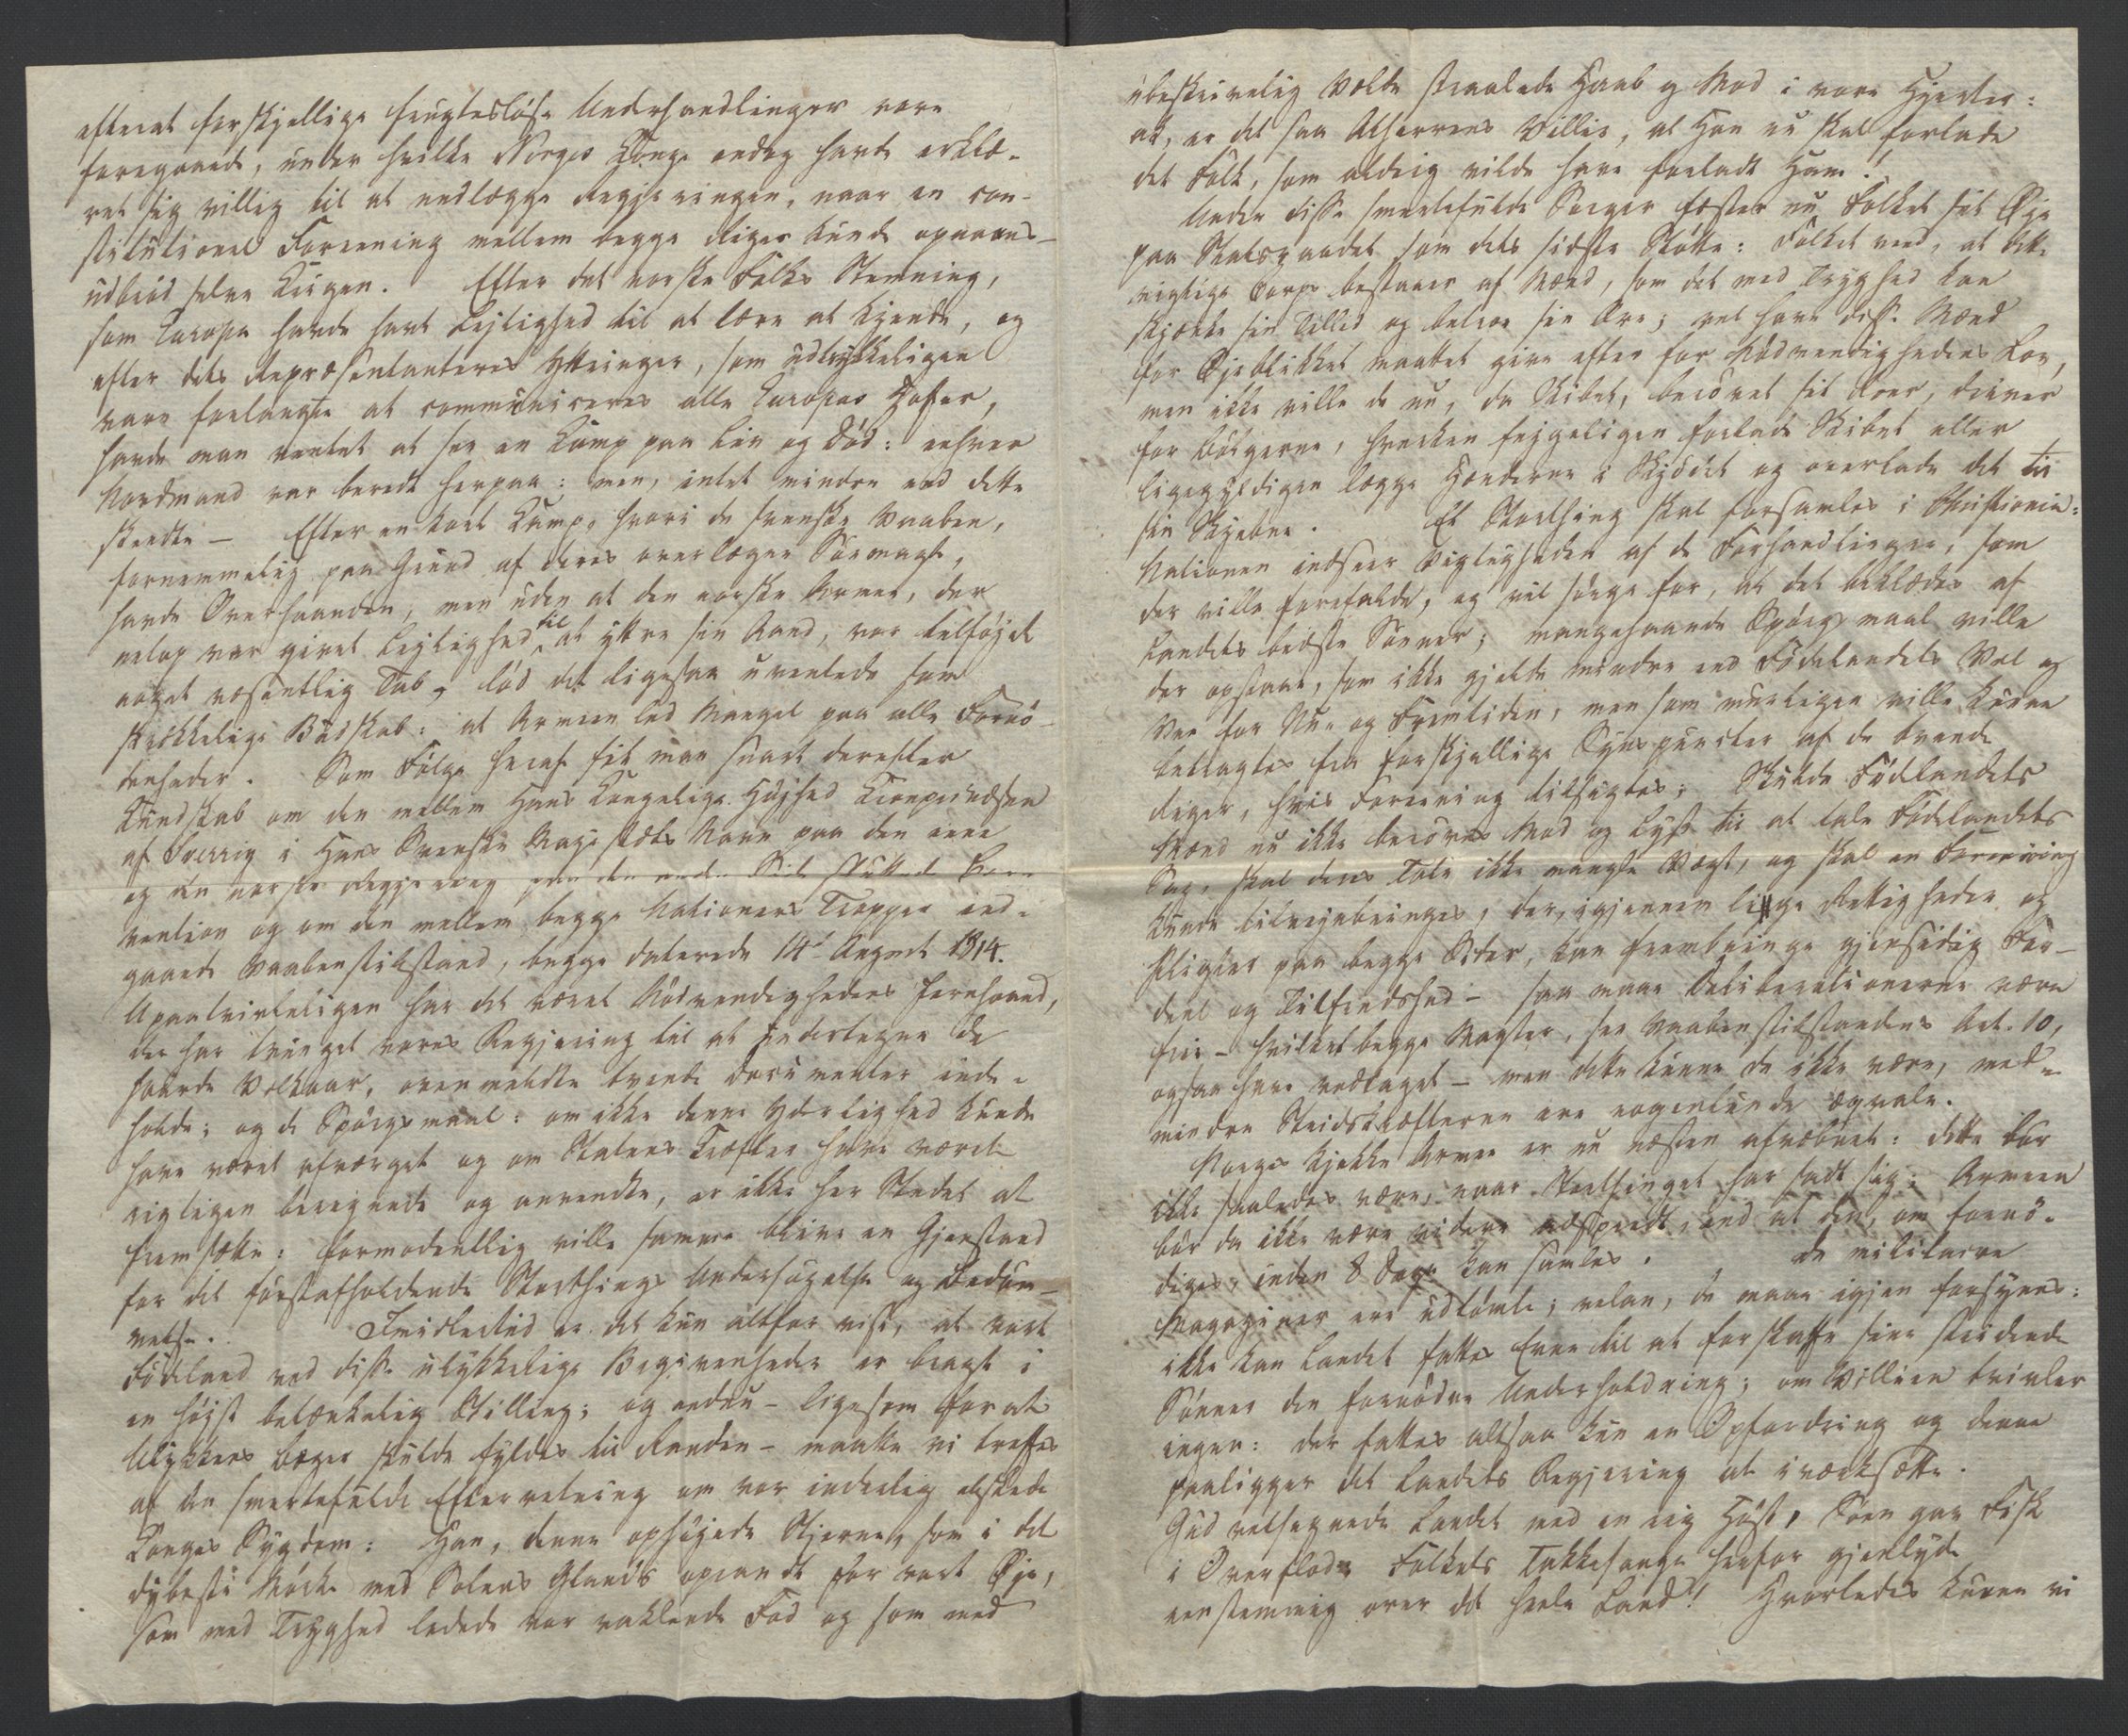 efterat forskjellige frugtesløse Underhandlinger vare
foregaaede, under hvilke Norges Konge endog havde erklæ-
ret sig villig til at nedlægge Regjeringen, naar en con-
stitutionel Forening mellem begge Riger kunde opnaaes –
udbrød selve Krigen. Efter det norske Folks Stemning,
som Europa havde havt Lejlighed til at lære at kjende, og
efter dets Repræsentanteres Yttringer, som udtrykkeligen
vare forlangte at communiceres alle Europas Hoffer,
havde man ventet at see en Kamp paa Liv og Død: enhver
Nordmand var beredt herpaa: men, intet mindre end dette
skeedte – Efter en kort Kamp, hvori de svenske Vaaben,
fornemmelig paa Grund af deres overlegne Sömagt,
havde Overhaanden, men uden at den norske Armee, der
nelop var givet Leylighed til at yttre sin Aand, var tilføjet
noget væsentlig Tab, lød det ligesaa uventede som
skrækkelige Budskab: at Armeen led Mangel paa alle Fornö-
denheder. Som Fölge heraf fik man snart derefter
Kundskab om den mellem Hans Kongelige Højhed Kronprindsen
af Sverrig i Hans Svenske Majestæts Navn paa den eene
og den norske Regjering paa den anden Side sluttede Con-
vention og om den mellem begge Nationers Tropper ind-
gaaede Vaabenstilstand, begge daterede 14d August 1814.
Upaatvivleligen har det været Nödvendighedens Jernhaand,
der har tvunget vores Regjering til at undertegne de
haarde Vilkaar, ovenmeldte tvende Documenter inde-
holde; og de Spörgsmaal: om ikke denne Yderlighed kunde
have været afværget og om Statens Kræfter have været
rigtigen beregnede og anvendte, er ikke her Stedet at
fremsætte: formodentlig ville samme blive en Gjenstand
for det förstafholdende Storthings Undersögelse og Bedöm-
melse. Imidlertid er det kun altfor vist, at vort
Födeland ved disse ulykkelige Begivenheder er bragt i
en höjst betænkelig Stilling; og endnu – ligesom for at
Ulykkens Bæger skulde fyldes til Randen – maatte vi treffes
af den smertefulde Efterretning om vor inderlig elskede
Konges Sygdom: Han, denne ophöjede Stjerne, som i det
dybeste Mörke med Solens Glands oprandt for vort Øje,
som med Tryghed ledede vor vaklende Fod og som med
ubeskrivelig Vælde straalede Haab og Mod i vore Hjerter:
ak, er det saa Alherrens Villie, at Han nu skal forlade
det Folk, som aldrig vilde have forladt Ham!
Under disse smertefulde Sorger fæster nu Folket sit Øje
paa Statsraadet som dets sidste Stötte: Folket veed, at dette
vigtige Corps bestaaer af Mænd, som det med Tryghed kan
skjænke sin Tillid og betroe sin Ære; vel have disse Mænd
for Øjeblikket maattet give efter for Nödvendighedens Lov,
men ikke ville de nu, da Skibet, berövet sit Roer, driver
for Bölgerne, hverken fejgeligen forlade Skibet eller
ligegyldigen lægge Hænderne i Skjödet og overlade det til
sin Skjebne. Et Storthing skal forsamles i Christiania:
Nationen indseer Vigtigheden af de Forhandlinger, som
der ville forefalde, og vil sörge for, at det beklædes af
Landets bedste Sönner; mangehaande Spörgsmaal ville
der opstaae, som ikke gjelde mindre end Födelandets Vel og
Vee for Nu og Fremtiden, men som muligen ville kunne
betragtes fra forskjellige Synspuncter af de tvende
Riger, hvis Forening tilsigtes; Skulde Fødelandets
Mænd nu ikke beröves Mod og Lyst til at tale Födelandets
Sag, skal deres Tale ikke mangle Vægt, og skal en Forening
kunde tilvejebringes, der, igjennem lige Rettigheder og
Pligter paa begge Sider, kan frembringe gjensidig For-
deel og Tilfredshed – saa maae Deliberationerne være
frie – hvilket begge Magter, see Vaabenstilstandens Art. 10,
ogsaa have vedtaget – men dette kunne de ikke være, med-
mindre Stridskræfterne ere nogenlunde æqvale.
Norges kjække Armee er nu næsten afvæbnet: dette bör
ikke saaledes være, naar Storthinget har sadt sig; Armeen
bör da ikke være videre adspredt, end at den, om fornö-
diges, inden 8 Dage kan samles. de militaire
Magaziner ere udtömte; velan, de maae igjen forsynes:
ikke kan Landet fattes Evne til at forskaffe sine stridende
Sönner den fornödne Underholdning; om Villien tvivler
ingen: der fattes altsaa kun en Opfordring og denne
paaligger det Landets Regjering at iværksætte.
Gud velsignede Landet med en rig Höst, Söen gav Fisk
i Overflod. Folkets Takkesange herfor gjenlyde
eenstemmig over det heele Land! Hvorledes kunne vi